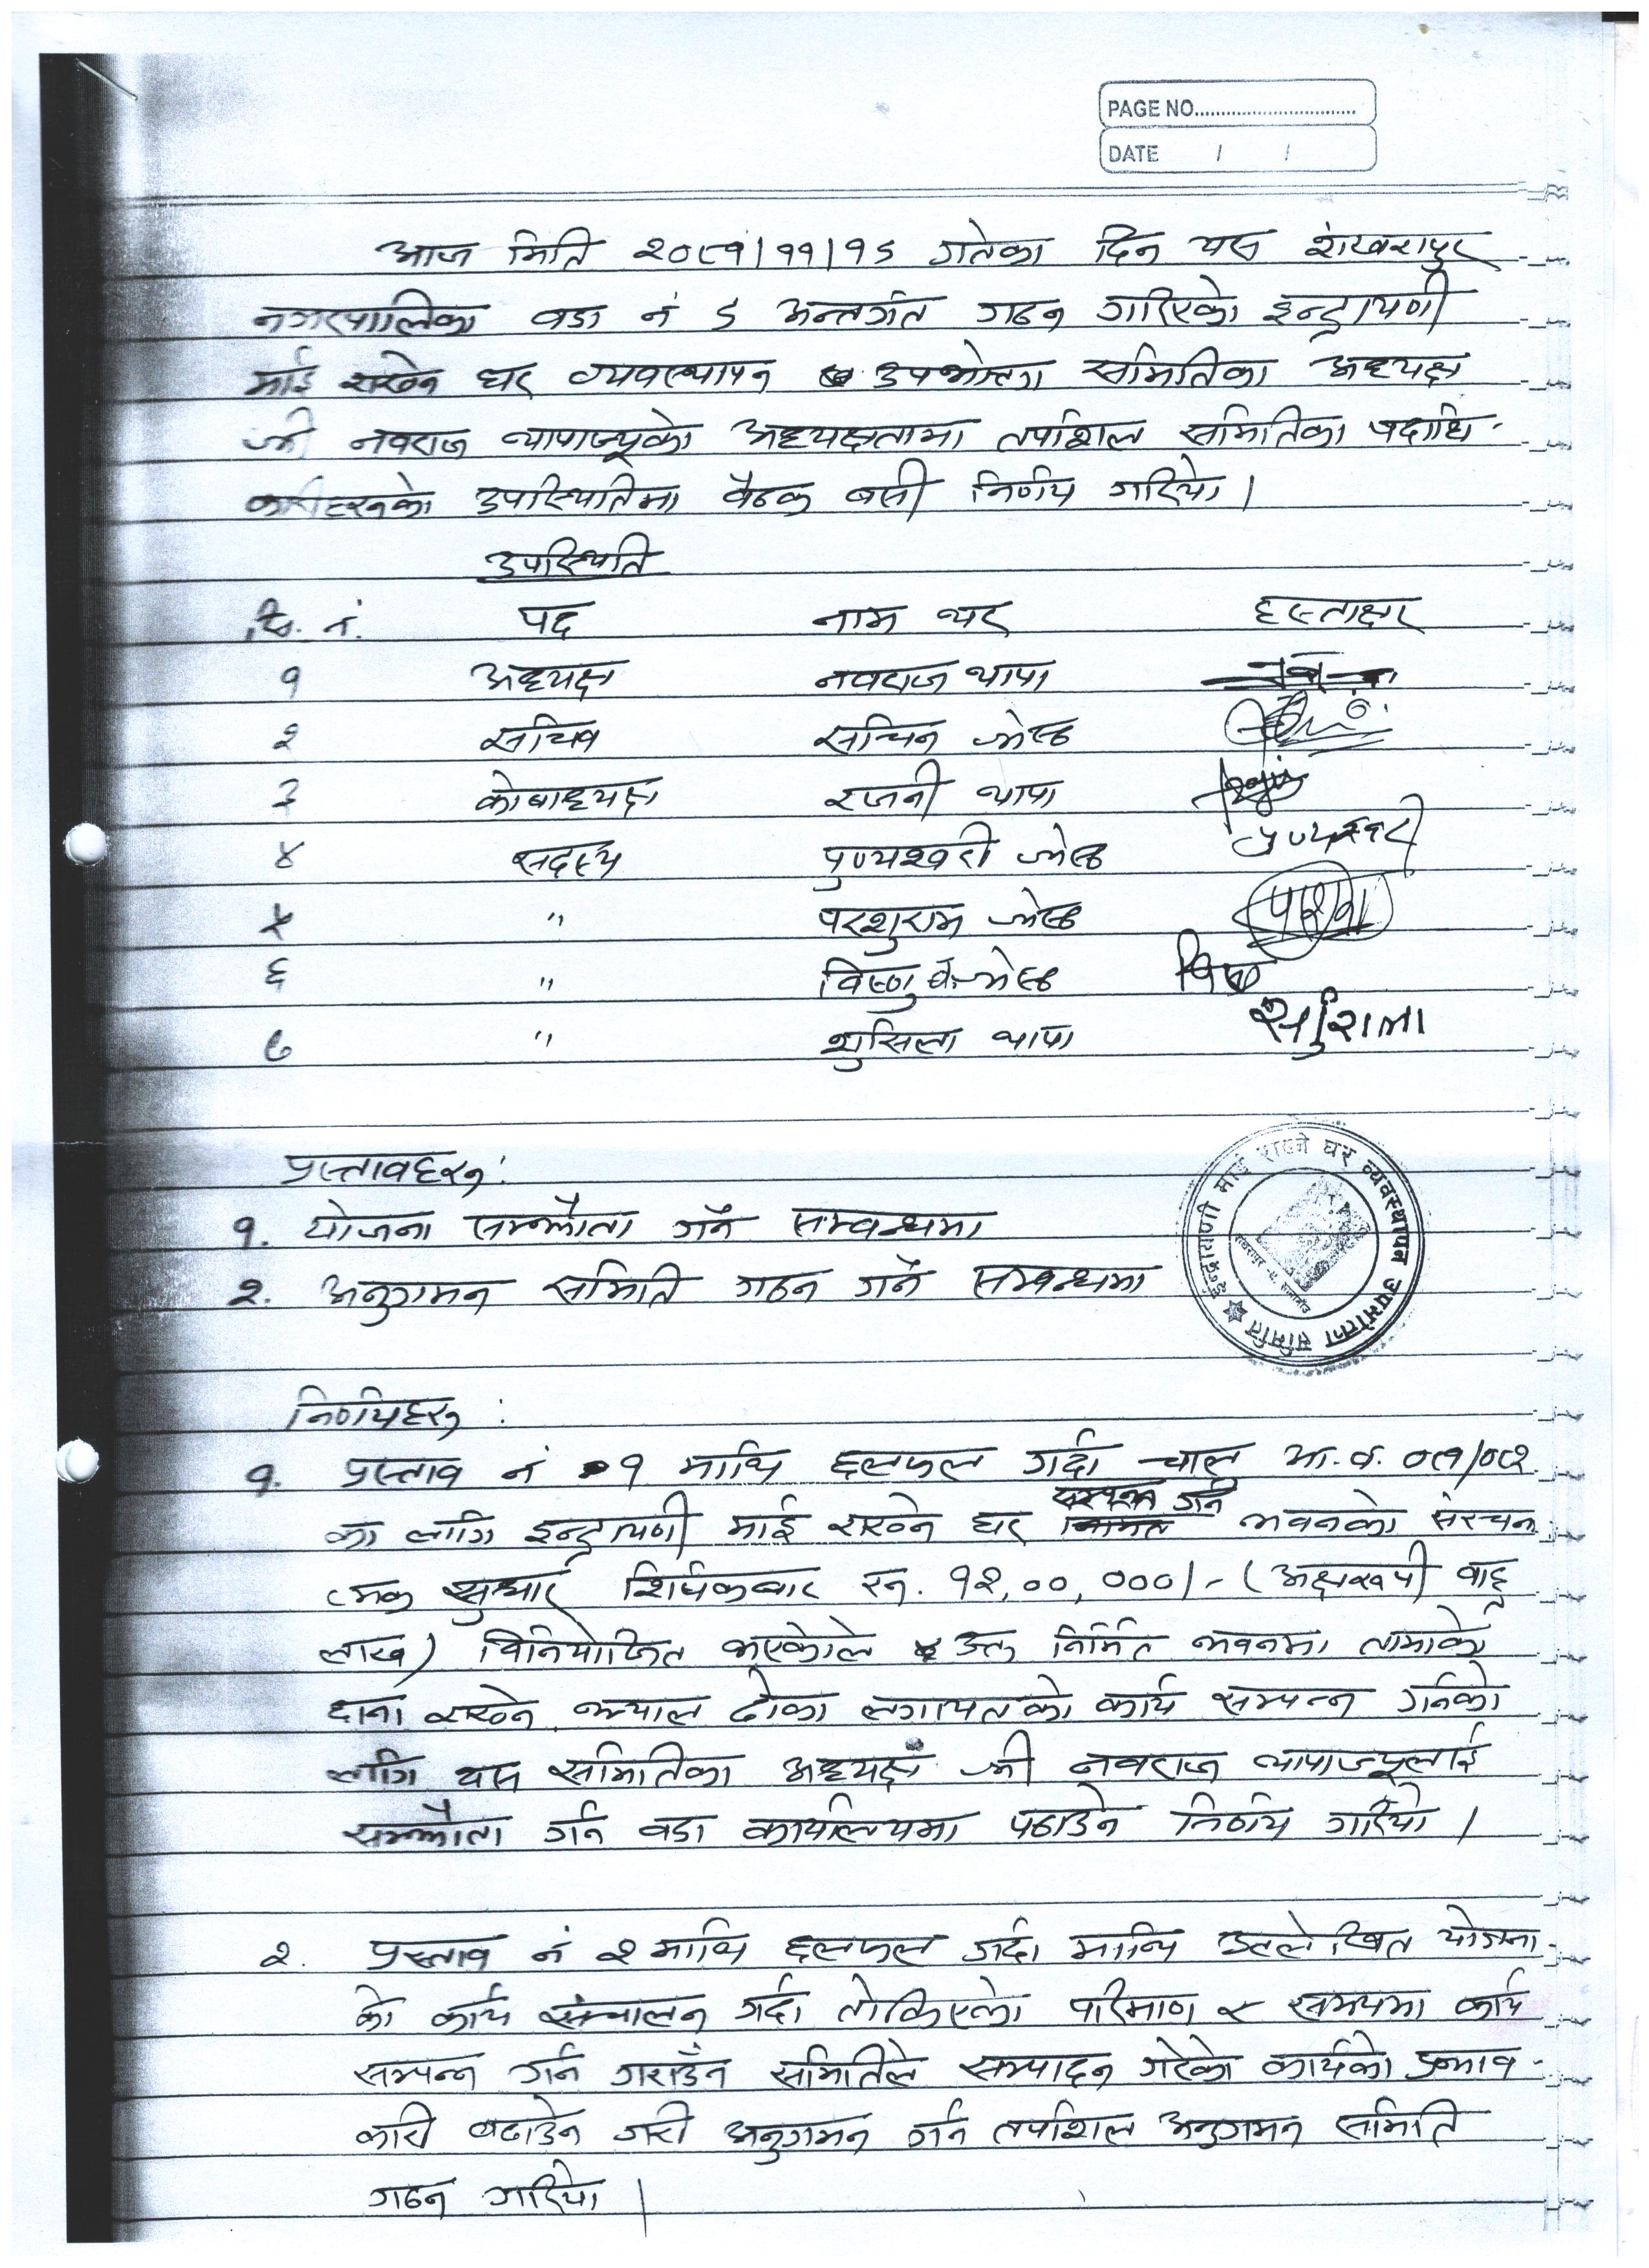 PAGE NO..............................
DATE / /
आज मिति २०८१।११।१८ गतेका दिन यस शंखरापुर
नगरपालिका वडा नं ८ अन्तर्गत गठन गरिएको इन्द्रायणी
माई राख्ने घर व्यवस्थापन उपभोक्ता समितिका अध्यक्ष
श्री नवराज थापाज्यूको अध्यक्षतामा तपशिल समितिका पदाधि-
कारीहरुको उपस्थितिमा बैठक बसी निर्णय गरियो।
उपस्थिति
सि. नं. पद नाम थर हस्ताक्षर
१ अध्यक्ष नवराज थापा
२ सचिव सचिन श्रेष्ठ
३ कोषाध्यक्ष रजनी थापा
४ सदस्य पुण्यश्वरी श्रेष्ठ
५ " परशुराम श्रेष्ठ
६ " विष्णु श्रेष्ठ
७ " शुसिला थापा
प्रस्तावहरु:
१. योजना सम्झौता गर्ने सम्बन्धमा
२. अनुगमन समिति गठन गर्ने सम्बन्धमा
इन्द्रायणी माई राख्ने घर व्यवस्थापन उपभोक्ता समिति
निर्णयहरु :
१. प्रस्ताव नं १ माथि छलफल गर्दा चालु आ.व. ०८१/०८२
का लागि इन्द्रायणी माई राख्ने घर सम्पन्न गर्न भवनको संरचना
त्मक सुधार शिर्षकबाट रु. १२,००,०००/- (अक्षरूपी बाह्र
लाख) विनियोजित भएकोले उक्त निर्मित भवनमा तामाको
छाना राख्ने, झ्याल ढोका लगायतको कार्य सम्पन्न गर्नको
लागि यस समितिका अध्यक्ष श्री नवराज थापाज्यूलाई
सम्झौता गर्न वडा कार्यालयमा पठाउने निर्णय गरियो।
२. प्रस्ताव नं २ माथि छलफल गर्दा माथि उल्लेखित योजना
को कार्य संचालन गर्दा तोकिएको परिमाण र समयमा कार्य
सम्पन्न गर्न गराउन समितिले सम्पादन गरेको कार्यको प्रभाव-
कारी बढाउने गरी अनुगमन गर्न तपशिल अनुगमन समिति
गठन गरियो।